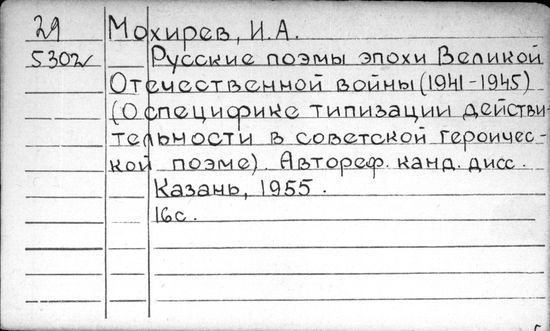 29 Мохирев, И.А.
5302 Русские поэмы эпохи Великой
Отечественной войны (1941-1945)
(О специфике типизации действи-
тельности в советской героичес-
кой поэме). Автореф. канд. дисс.
Казань, 1955.
16с.